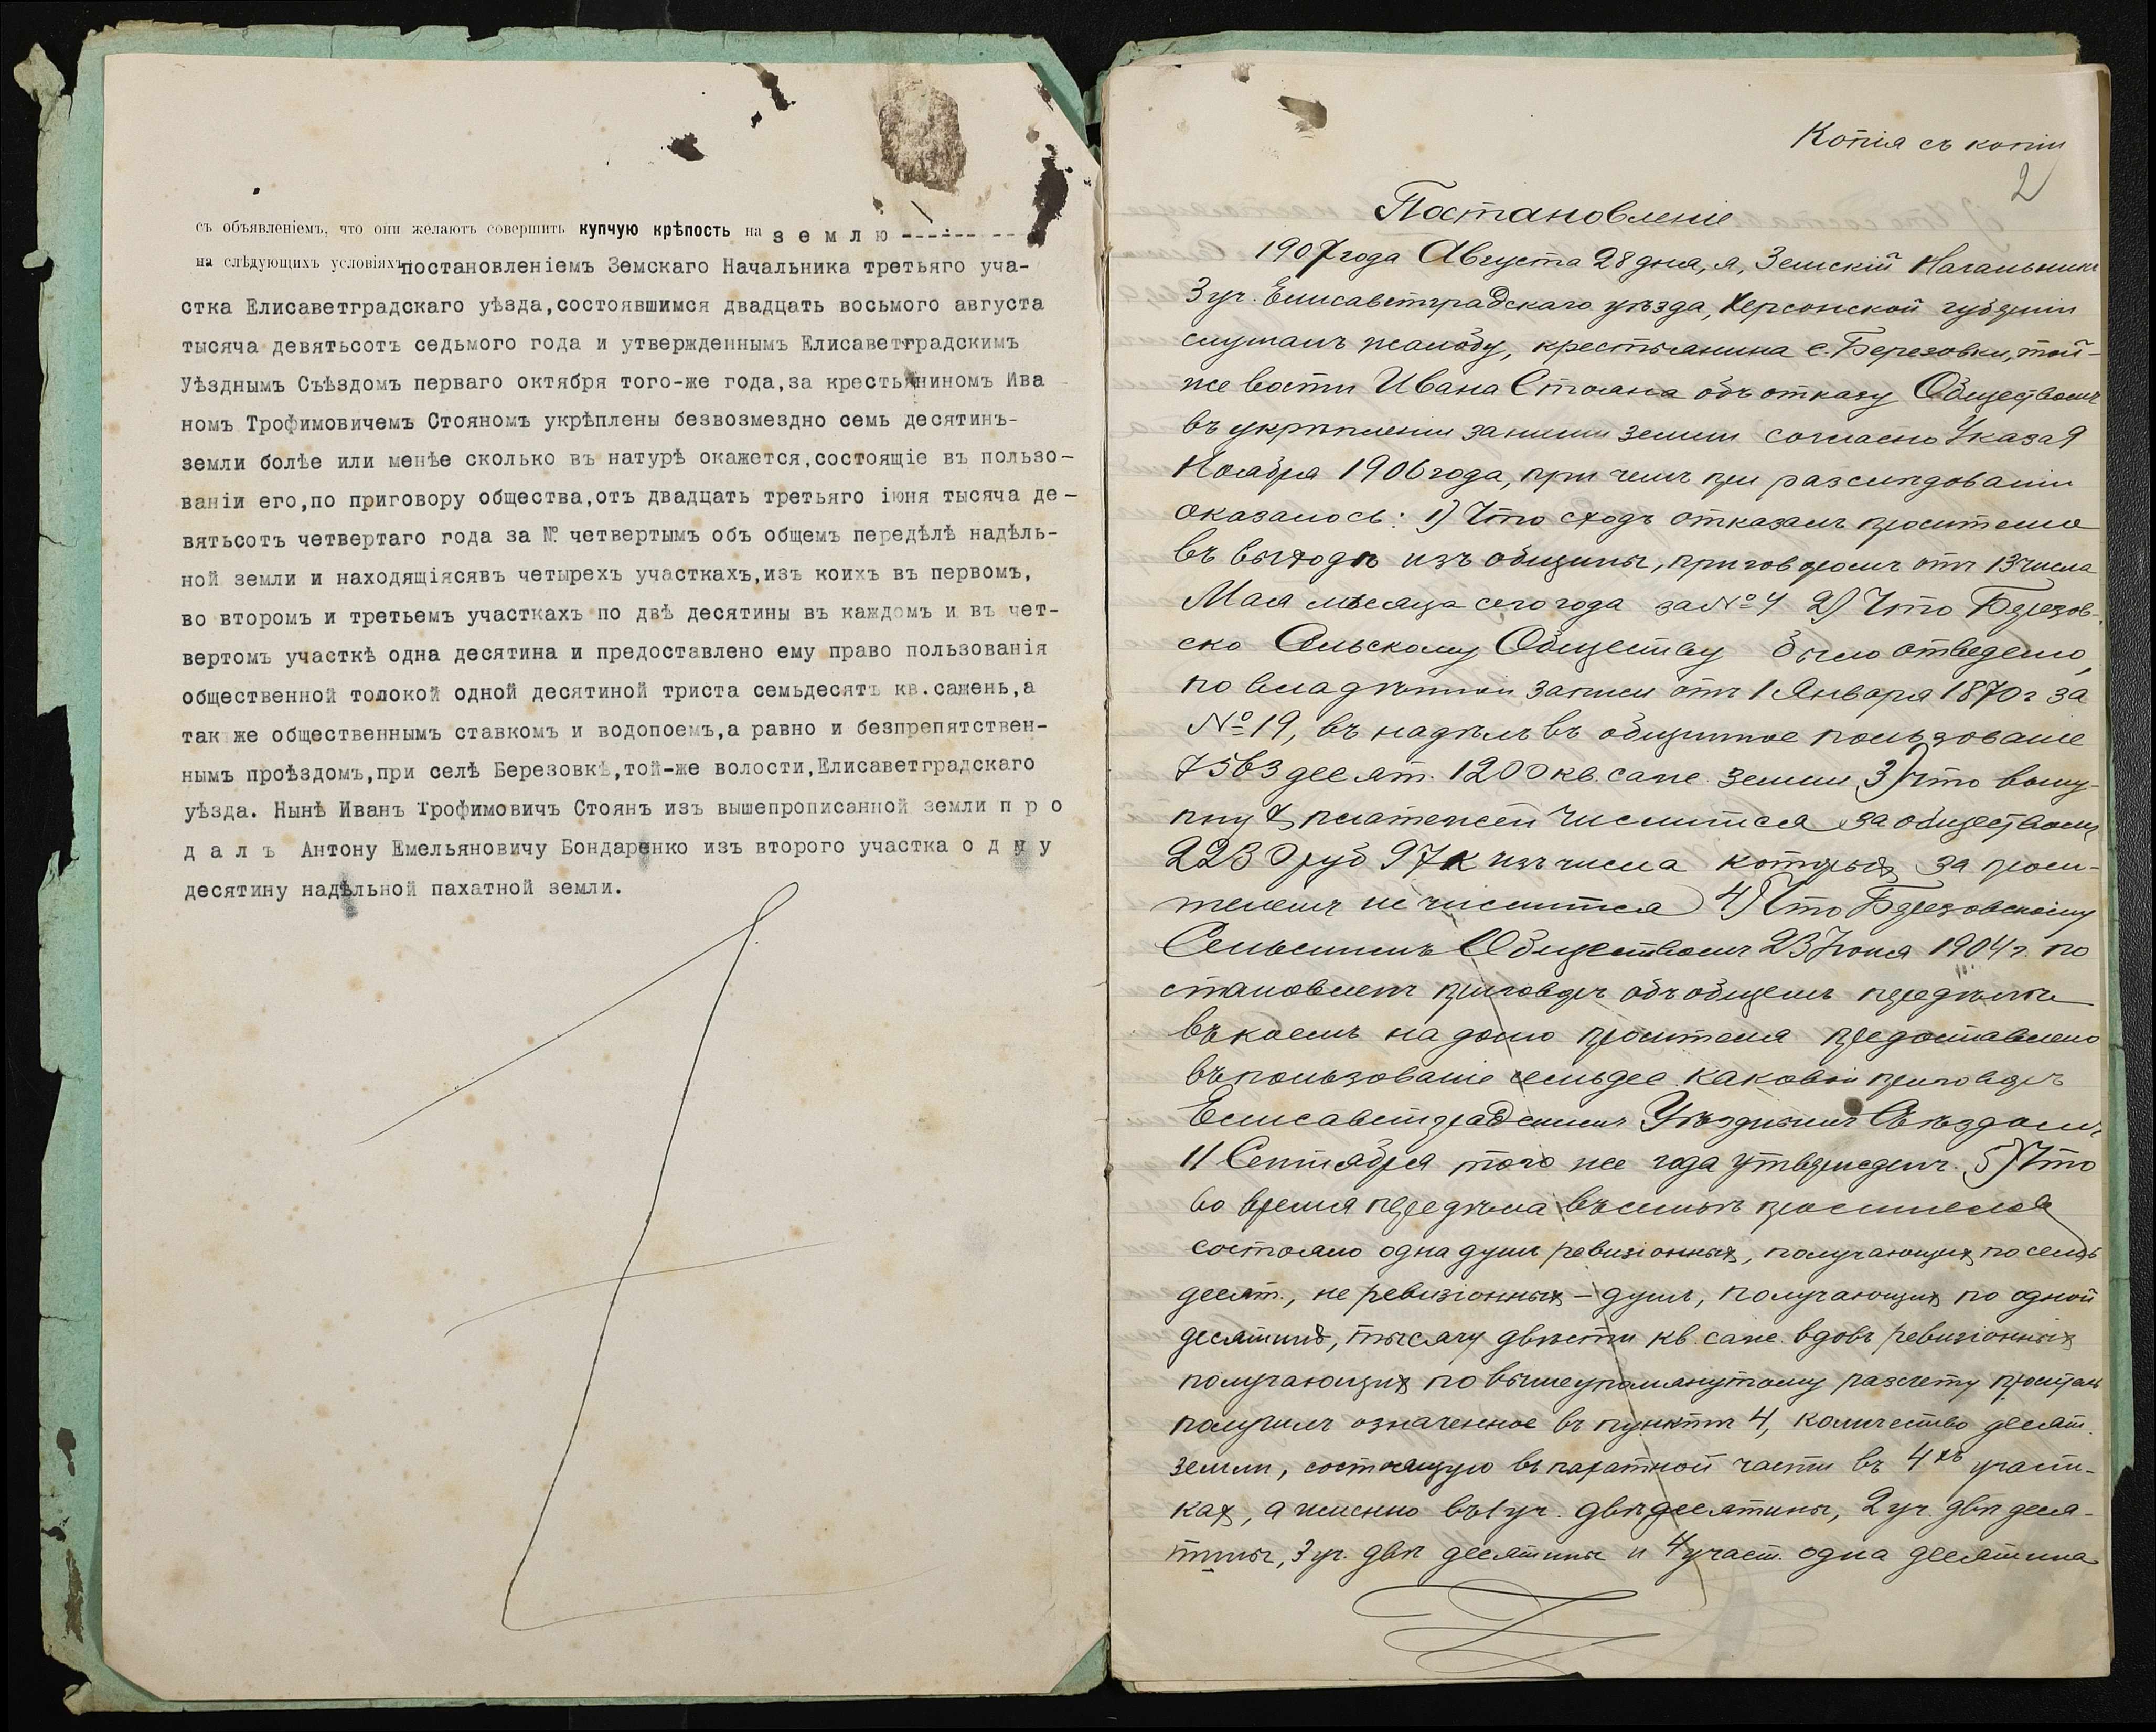 съ объявленіемъ, что они желаютъ совершить купчую крѣпость на з е м л ю ---------
на слѣдующихъ условіяхъ постановленіемъ Земскаго Начальника третьяго уча-
стка Елисаветградскаго уѣзда,состоявшимся двадцать восьмого августа
тысяча девятьсотъ седьмого года и утвержденнымъ Елисаветградскимъ
Уѣзднымъ Съѣздомъ перваго октября того-же года,за крестьяниномъ Ива
номъ Трофимовичемъ Стояномъ укрѣплены безвозмездно семь десятинъ-
земли болѣе или менѣе сколько въ натурѣ окажется,состоящіе въ пользо-
ваніи его,по приговору общества,отъ двадцать третьяго іюня тысяча де-
вятьсотъ четвертаго года за № четвертымъ объ общемъ передѣлѣ надѣль-
ной земли и находящіясявъ четырехъ участкахъ,изъ коихъ въ первомъ,
во второмъ и третьемъ участкахъ по двѣ десятины въ каждомъ и въ чет-
вертомъ участкѣ одна десятина и предоставлено ему право пользованія
общественной толокой одной десятиной триста семьдесятъ кв.сажень,а
так же общественнымъ ставкомъ и водопоемъ,а равно и безпрепятствен-
нымъ проѣздомъ,при селѣ Березовкѣ,той-же волости,Елисаветградскаго
уѣзда. Нынѣ Иванъ Трофимовичъ Стоянъ изъ вышепрописанной земли п р о
д а л ъ Антону Емельяновичу Бондаренко изъ второго участка о д н у
десятину надѣльной пахатной земли.
Копія съ копіи
2
Постановленіе
1907 года Августа 28 дня, я, Земскій Начальникъ
3 уч. Елисаветградскаго уѣзда, Херсонской губерніи
слушалъ жалобу, крестьянина с. Березовки, той-
же волости Ивана Стояна объ отказу Обществомъ
въ укрѣпленіи за нимъ земли согласно Указа 9
Ноября 1906 года, при чемъ при разслѣдованіи
оказалось: 1) Что сходъ отказалъ просителю
въ выходѣ изъ общины, приговоромъ отъ 13 числа
Мая мѣсяца сего года за № 4 2) Что Березов-
ско Сельскому Обществу было отведено,
по владѣнной записи отъ 1 Января 1870 г за
№ 19, въ надѣлъ въ общинное пользованіе
7563 десят. 1200 кв. саж. земли 3) Что выку-
пнух платежей числится за обществомъ
2230 руб 97 к изъ числа которых за проси-
телемъ не числится 4) Что Березовскому
Сельскимъ Обществомъ 23 Іюня 1904 г. по
становленъ приговоръ объ общемъ передѣлѣ
въ коемъ на долю просителя предоставлено
въ пользованіе семь дес. каковой приговоръ
Елисаветградскимъ Уѣзднымъ Съѣздомъ
11 Сентября того же года утвержденъ. 5) Что
во время передѣла въ семьѣ просителя
состояло одна душъ ревизіонных, получающих по семь
десят., не ревизіонных - душъ, получающих по одной
десятинѣ, тысячу двѣсти кв. саж. вдовъ ревизіонных
получающих по вышеупомянутому разсчету
получилъ означенное въ пунктѣ 4, количество десят.
земли, состоящую въ пахатной части въ 4хъ участ-
ках, а именно въ 1 уч. двѣ десятины, 2 уч. двѣ деся-
тины, 3 уч. двѣ десятины и 4 участ. одна десятина